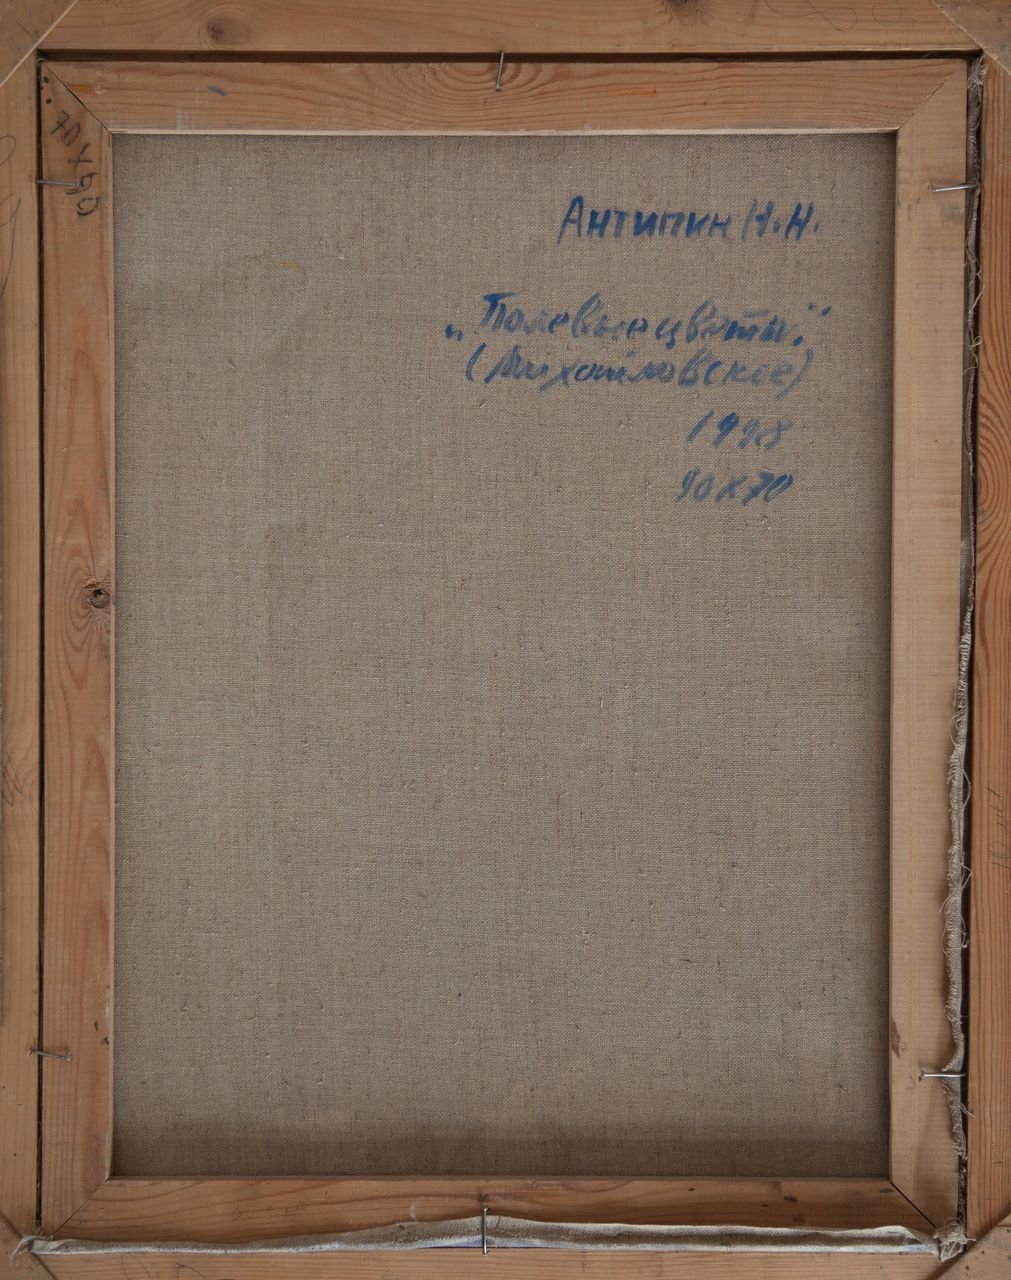 70х90
Антипин Н.Н.
„Полевые цветы."
(Михайловское)
1998
90х70